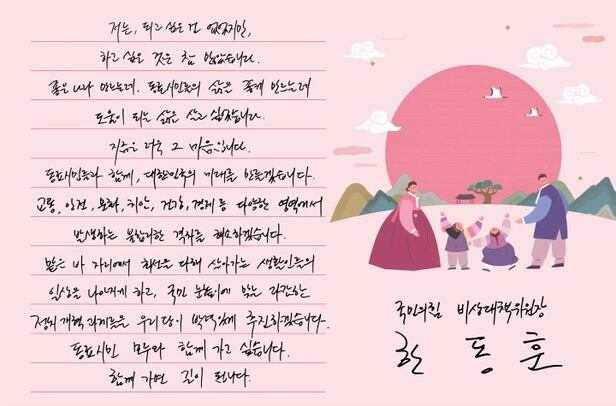 저는, 되고 싶은 건 없었지만,
하고 싶은 것은 참 많았습니다.
좋은 나라 만드는데, 동료시민들의 삶을 좋게 만드는데
도움이 되는 삶을 살고 싶었습니다.
지금은 더욱 그 마음입니다.
동료시민들과 함께, 대한민국의 미래를 만들겠습니다.
교통, 안전, 문화, 치안, 건강, 경제 등 다양한 영역에서
발생하는 불합리한 격차를 해소하겠습니다.
맡은 바 자리에서 최선을 다해 살아가는 생활인들의
일상을 나아지게 하고, 국민 눈높이에 맞는 과감한
정치 개혁 과제들을 우리 당이 박력있게 추진하겠습니다.
동료시민 모두와 함께 가고 싶습니다.
함께 가면 길이 됩니다.
국민의힘 비상대책위원장
한동훈